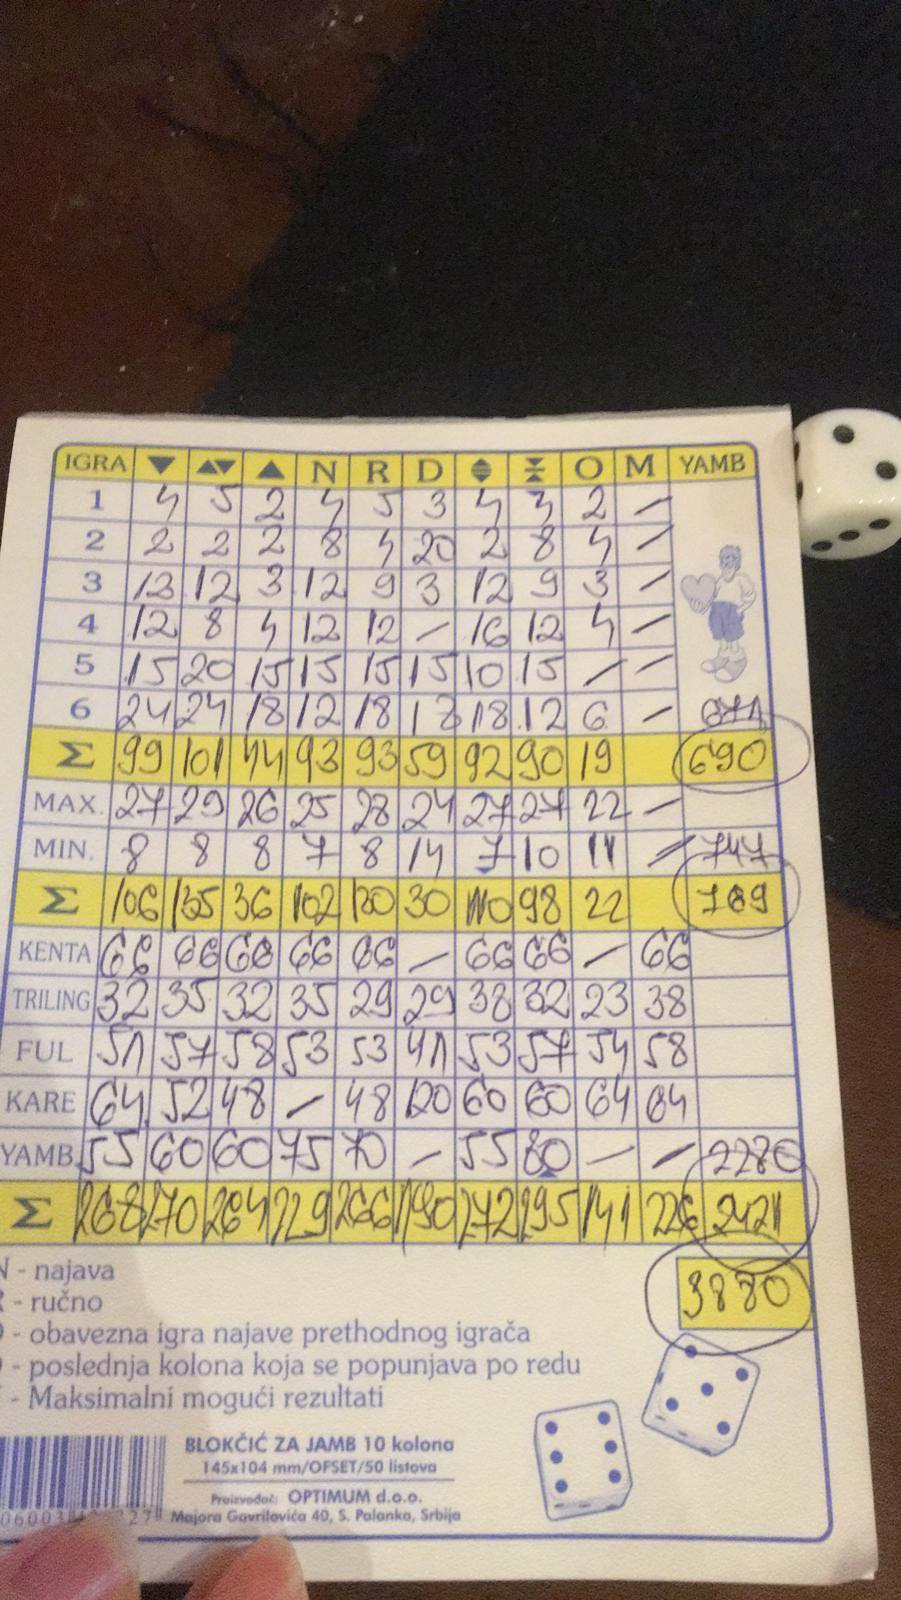 IGRA ▼ ▲▼ ▲ N R D O M YAMB
1 4 5 2 4 5 3 4 3 2 -
2 2 2 2 8 4 20 2 8 4 -
3 13 12 3 12 9 3 12 9 3 -
4 12 8 4 12 12 - 16 12 4 -
5 15 20 15 15 15 15 10 15 - -
6 24 24 18 12 18 18 18 12 6 - 671
Σ 99 101 44 93 93 59 92 90 19 690
MAX. 27 29 26 25 28 24 27 27 22 -
MIN. 8 8 8 7 8 14 7 10 11 - 747
Σ 106 135 36 102 120 30 110 98 22 769
KENTA 66 66 66 66 66 - 66 66 - 66
TRILING 32 35 32 35 29 29 38 32 23 38
FUL 51 57 58 53 53 41 53 57 54 58
KARE 64 52 48 - 48 120 60 60 64 64
YAMB 55 60 60 75 70 - 55 80 - - 2280
Σ 268 270 264 229 266 190 272 295 141 226 2421
3880
N - najava
- ručno
- obavezna igra najave prethodnog igrača
- poslednja kolona koja se popunjava po redu
- Maksimalni mogući rezultati
BLOKČIĆ ZA JAMB 10 kolona
145x104 mm/OFSET/50 listova
Proizvođač: OPTIMUM d.o.o.
Majora Gavrilovića 40, S. Palanka, Srbija